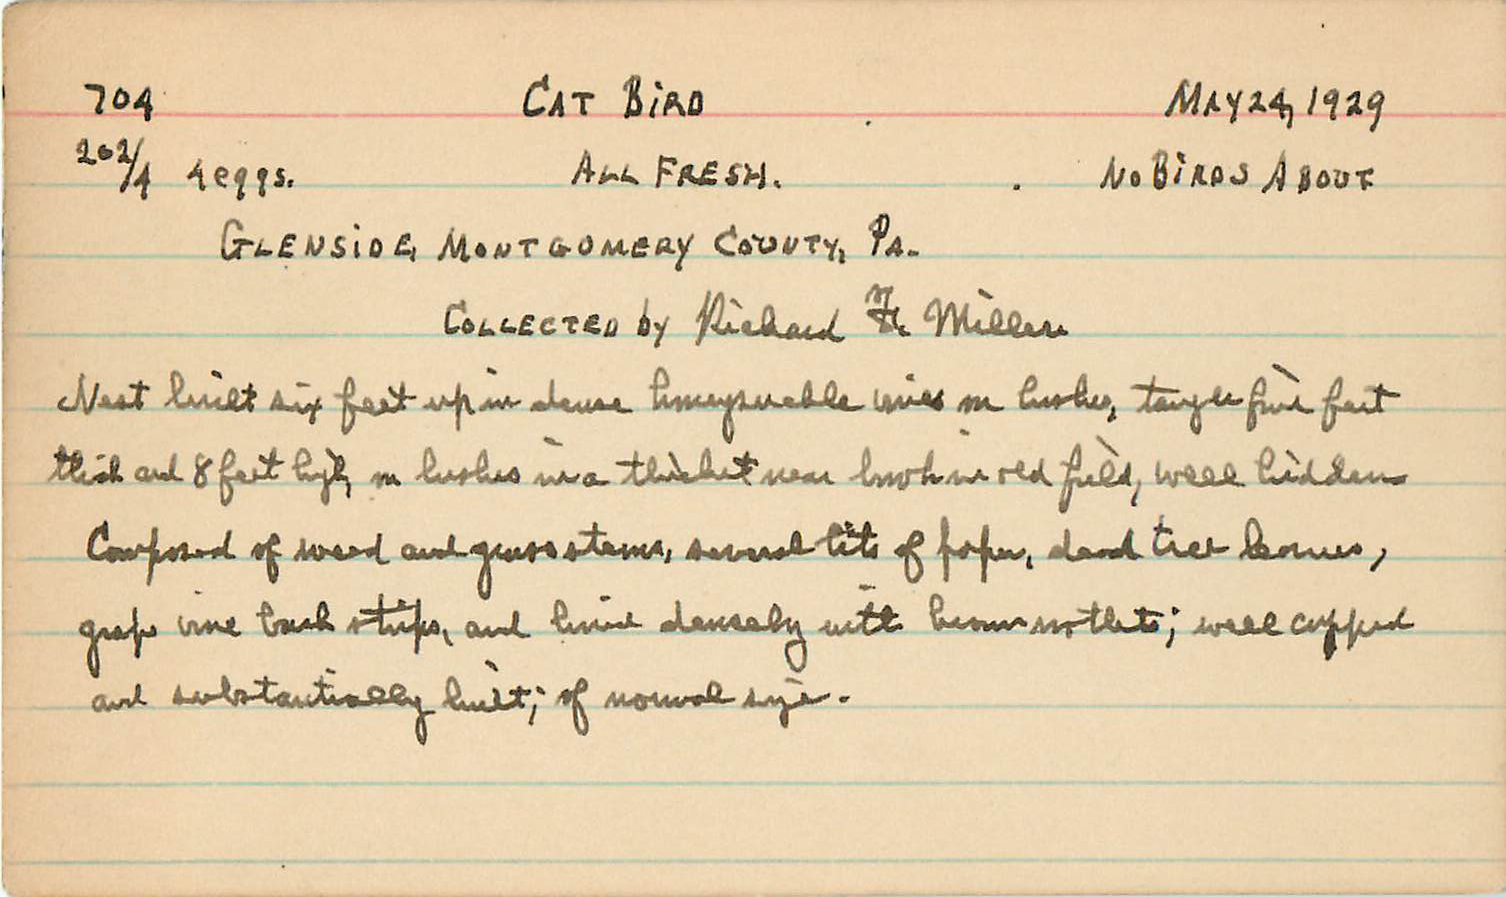 704 CAT BIRD MAY 24, 1929
202/4 4 eggs. ALL FRESH. NO BIRDS ABOUT
GLENSIDE, MONTGOMERY COUNTY, PA.
COLLECTED by Richard F. Miller
Nest built six feet up in dense honeysuckle vines on bushes, tangle five feet
thick and 8 feet high, on bushes in a thicket near brook in old field, well hidden
Composed of weed and grass stems, several bits of paper, dead tree leaves,
grape vine bark strips, and lined densely with brown rootlets; well cupped
and substantially built; of normal size.